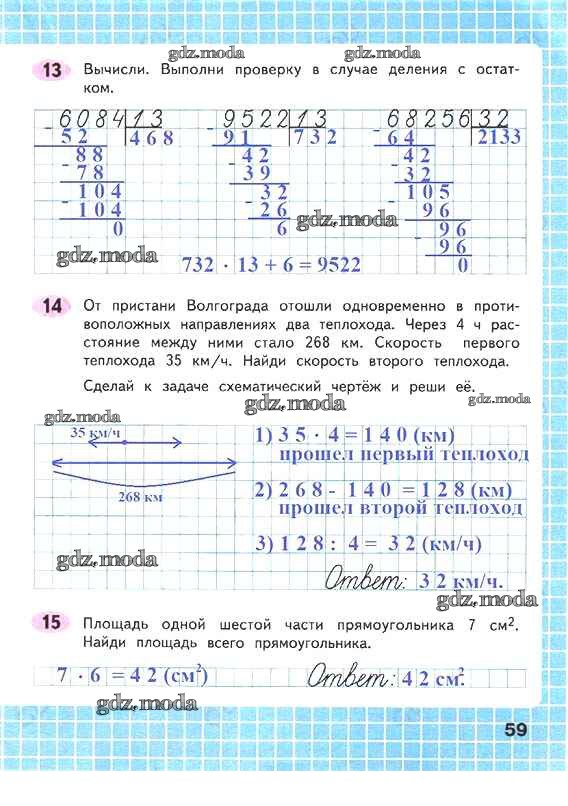 gdz.moda gdz.moda
13 Вычисли. Выполни проверку в случае деления с остат-
ком.
6084 13 9522 13 68256 32
- 52 468 - 91 732 - 64 2133
88 42 42
- 78 - 39 - 32
104 32 105
- 104 - 26 - 96
0 6 96
- 96
gdz.moda
gdz.moda 732 · 13 + 6 = 9522 0
14 От пристани Волгограда отошли одновременно в проти-
воположных направлениях два теплохода. Через 4 ч рас-
стояние между ними стало 268 км. Скорость первого
теплохода 35 км/ч. Найди скорость второго теплохода.
Сделай к задаче схематический чертёж и реши её.
gdz.moda gdz.moda gdz.moda
35 км/ч 1) 35 · 4 = 140 (км)
прошел первый теплоход
268 км 2) 268 - 140 = 128 (км)
прошел второй теплоход
gdz.moda 3) 128 : 4 = 32 (км/ч)
Ответ: 32 км/ч.
gdz.moda
15 Площадь одной шестой части прямоугольника 7 см².
Найди площадь всего прямоугольника.
7 · 6 = 42 (см²) Ответ: 42 см².
gdz.moda
59